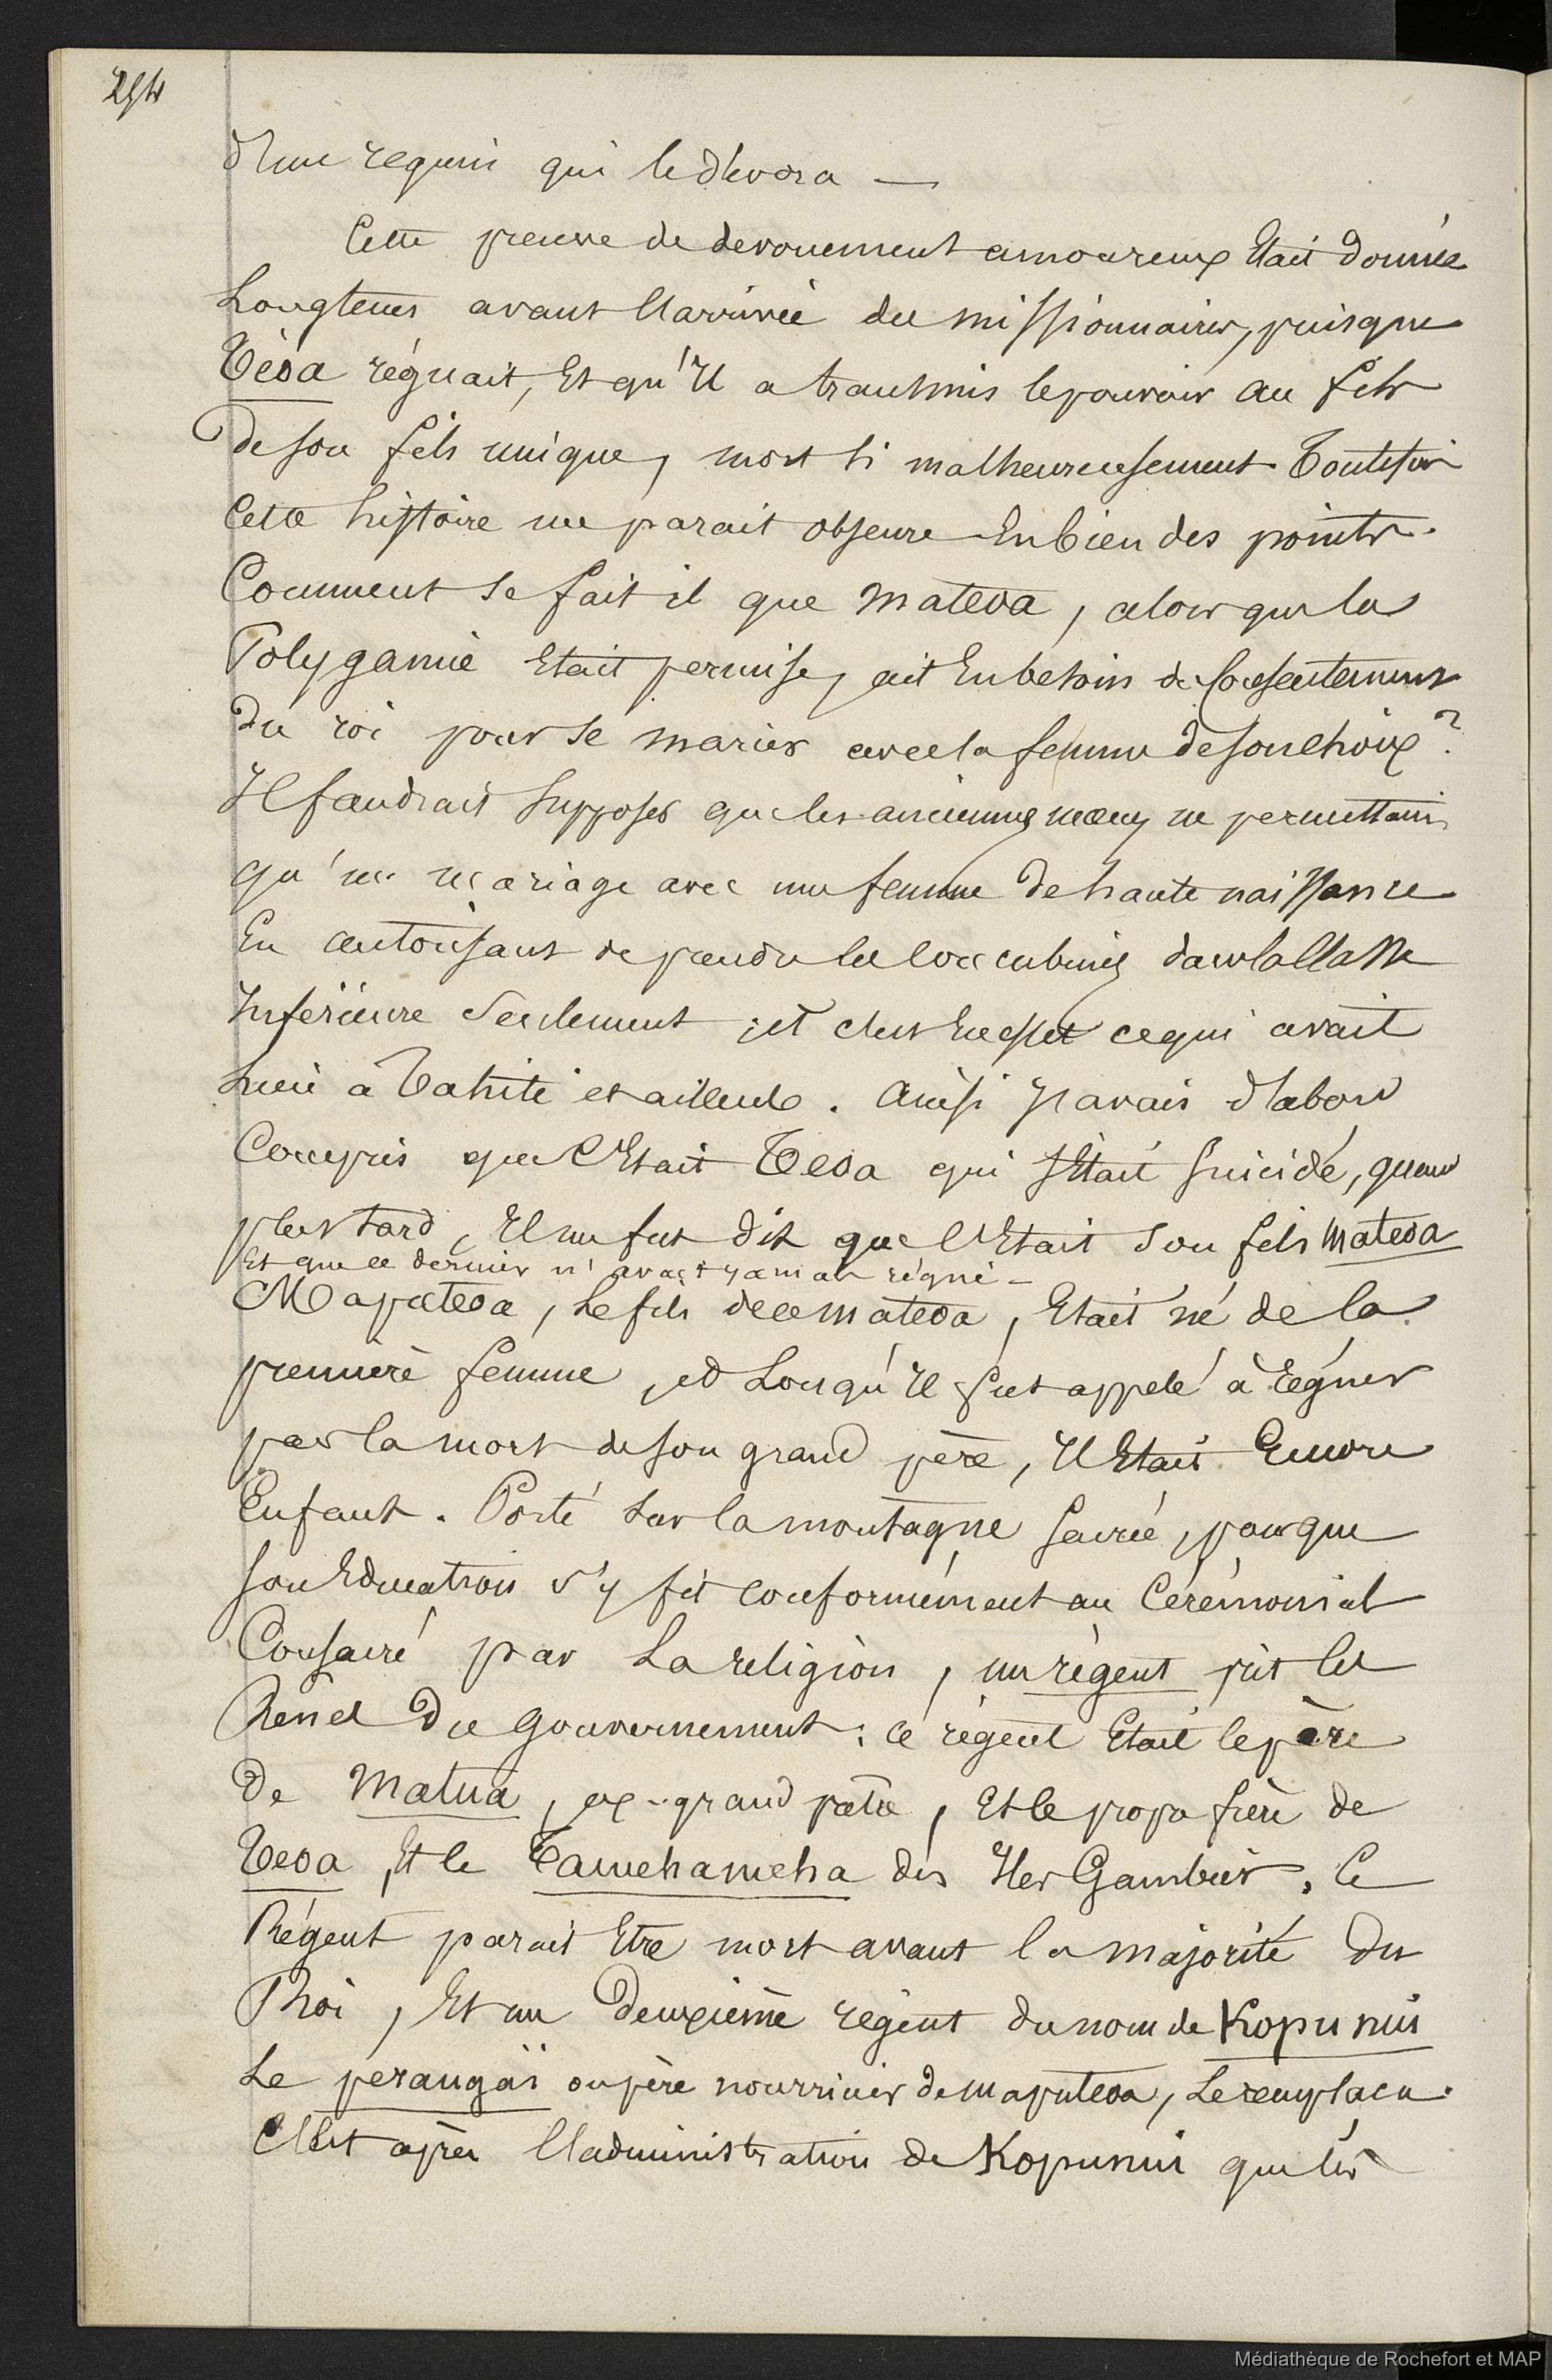 254
d'un requin qui le dévora —
Cette preuve de devouement amoureux Etait donnée
Longtems avant l'arrivée des missionnaires, puisque
Tèoa régnait, Et qu'Il a transmis le pouvoir au fils
de son fils unique, mort si malheureusement. Toutefois
Cette histoire me parait obscure En bien des points.
Comment se fait il que Mateoa, alors que la
Polygamie Etait permise, ait Eu besoin du Consentement
du roi pour se marier avec la femme de son choix ?
Il faudrait supposer que les anciennes mœurs ne permettaient
qu'un mariage avec une femme de haute naissance
En autorisant de prendre les concubines dans la classe
Inférieure seulement ; et c'est En effet ce qui avait
lieu à Tahiti et ailleurs. Ainsi j'avais d'abord
Compris que c'Etait Teoa qui s'Etait suicidé, quand
plus tard, Il me fut dit que c'Etait son fils Mateoa
Et que ce dernier n'avait jamais régné —
Maputeoa, Le fils de ce Mateoa, Etait né de la
première femme, et Lorsqu'Il fut appelé à régner
par la mort de son grand père, Il Etait Encore
Enfant. Porté sur la montagne sacrée, pour que
son Education s'y fit conformément au Cérémonial
Consacré par La religion, un règent prit les
Renes du Gouvernement : ce règent Etait le père
de Matua, ex-grand prêtre, Et le propre frère de
Teoa, Et le Tamehameha des Iles Gambier. Ce
Régent parait Etre mort avant la majorité du
Roi, Et un Deuxième règent du nom de Kopunui
Le perangaï ou père nourricier de Maputeoa, Le remplaça.
C'est après l'administration de Kopunui que les
Médiathèque de Rochefort et MAP